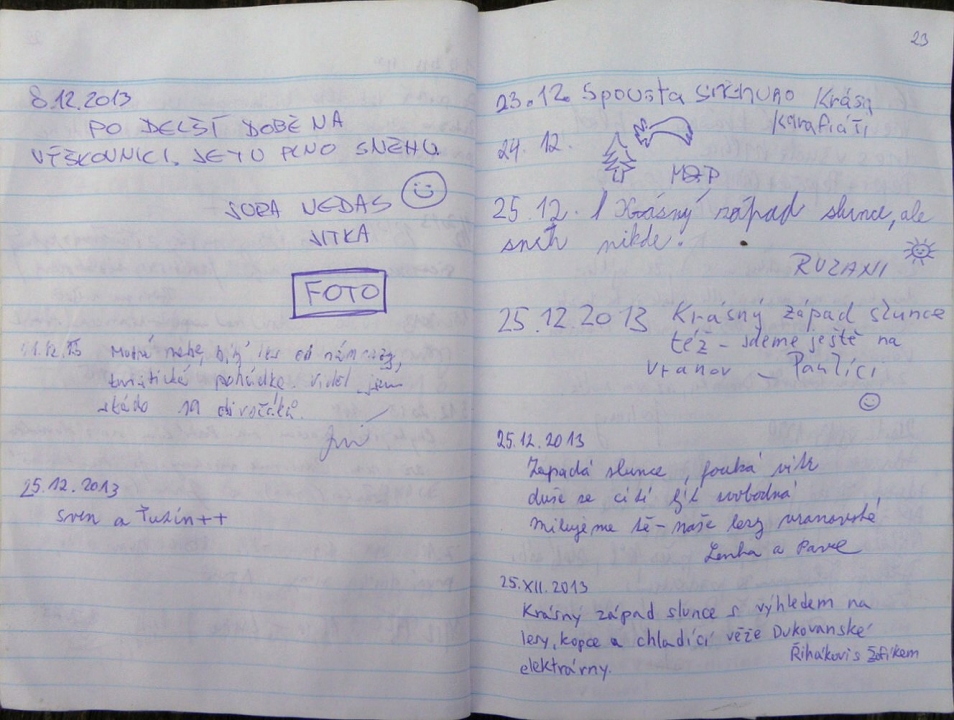 8.12.2013
PO DELŠÍ DOBĚ NA
VÝŠKOVNICI. JE TU PLNO SNĚHU
JITKA
FOTO
les od námrazy,
turistická pohádka. Viděl jsem
stádo divočáků.
Jiří
25.12.2013
Sven a Tuzín++
23
23.12. Spousta Krásn
Karafiáti
24.12.
25.12. Krásný západ slunce, ale
sníh nikde.
RUZANI
25.12.2013 Krásný západ slunce
též - jdeme ještě na
Vranov - Pavlíci
25.12.2013
Zapadá slunce, fouká vítr
duše se cítí být svobodná
Milujeme tě - naše lesy vranovské
Lenka a Pavel
25.XII.2013
Krásný západ slunce s výhledem na
lesy, kopce a chladící věže Dukovanské
elektrárny.
Řihákovi s Žofíkem